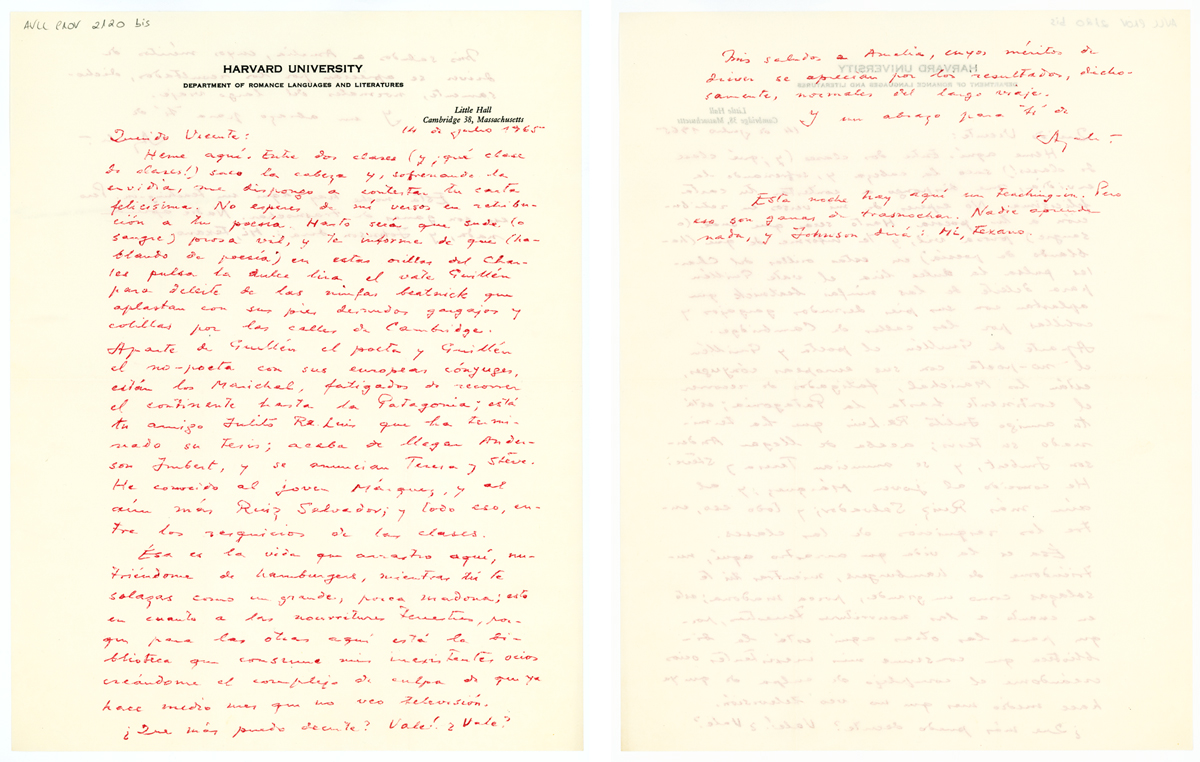 AVLL PNOV 2120 bis
HARVARD UNIVERSITY
DEPARTMENT OF ROMANCE LANGUAGES AND LITERATURES
Little Hall
Cambridge 38, Massachusetts
14 de julio 1965
Querido Vicente:
Heme aquí. Entre dos clases (y ¡qué clase
de clases!) saco la cabeza y, sofrenando la
envidia, me dispongo a contestar tu carta
felicísima. No esperes de mí versos en retribu-
ción a tu poesía. Harto será que sude (o
sangre) prosa vil, y te informe de que (ha-
blando de poesía) en estas orillas del Char-
les pulsa la dulce lira el vate Guillén
para deleite de las ninfas beatnick que
aplastan con sus pies desnudos gargajos y
colillas por las calles de Cambridge.
Aparte de Guillén el poeta y Guillén
el no-poeta con sus europeas cónyuges,
están los Marichal, fatigados de recorrer
el continente hasta la Patagonia; está
tu amigo Julito Re. Luis que ha termi-
nado su tesis; acaba de llegar Ander-
son Imbert, y se anuncian Teresa y Steve.
He conocido al joven Márquez, y al
aún más Ruiz Salvador; y todo eso, en-
tre los resquicios de las clases.
Ésa es la vida que arrastro aquí, nu-
triéndome de hamburgers, mientras tú te
solazas como un grande, porca madona; esto
en cuanto a las nourritures terrestres, por-
que para las otras aquí está la bi-
blioteca que consume mis inexistentes ocios
creándome el complejo de culpa de que ya
hace medio mes que no veo televisión.
¿Que más puedo decirte? Vale! ¿Vale?
Mis saludos a Amelia, cuyos méritos de
driver se aprecian por los resultados, dicho-
samente, normales del largo viaje.
Y un abrazo para tí de
Ayala-
Esta noche hay aquí un teaching-in. Pero
eso son ganas de trasnochar. Nadie aprende
nada, y Johnson dirá: Hi, Texans.